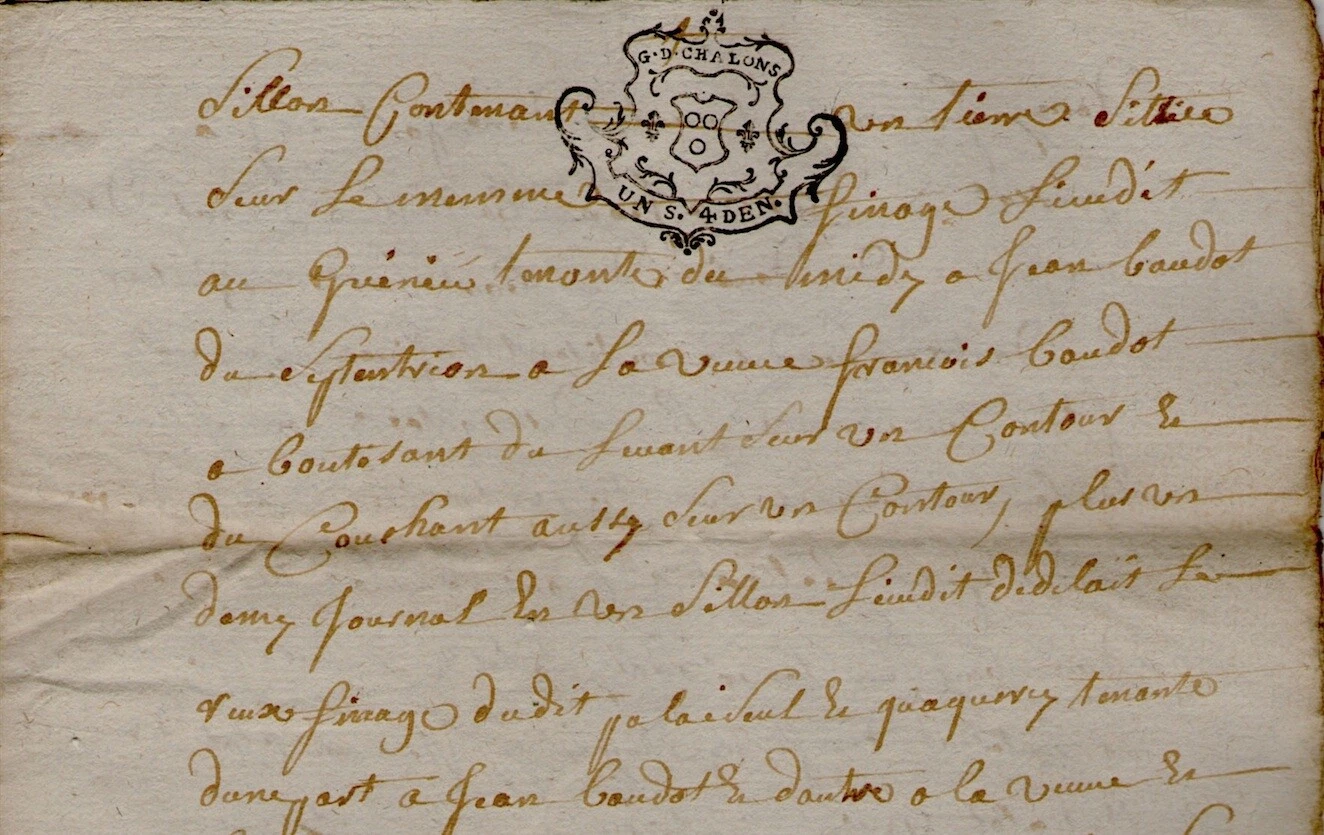 G·D·CHALONS
UN S. 4 DEN.
Sillon Contenant un tierre Sittüe
Sur Le mesme finage Lieudit
au tenante du midy a Jean baudot
du Septentrion a La veuve françois baudot
a boutisant du Levant Sur un Contour Et
du Couchant aussy Sur un Contour, plus un
demy Journal En un Sillon Lieudit Le
finage dudit palaiseul Et tenante
dune part a Jean baudot Et dautre a la veuve Et